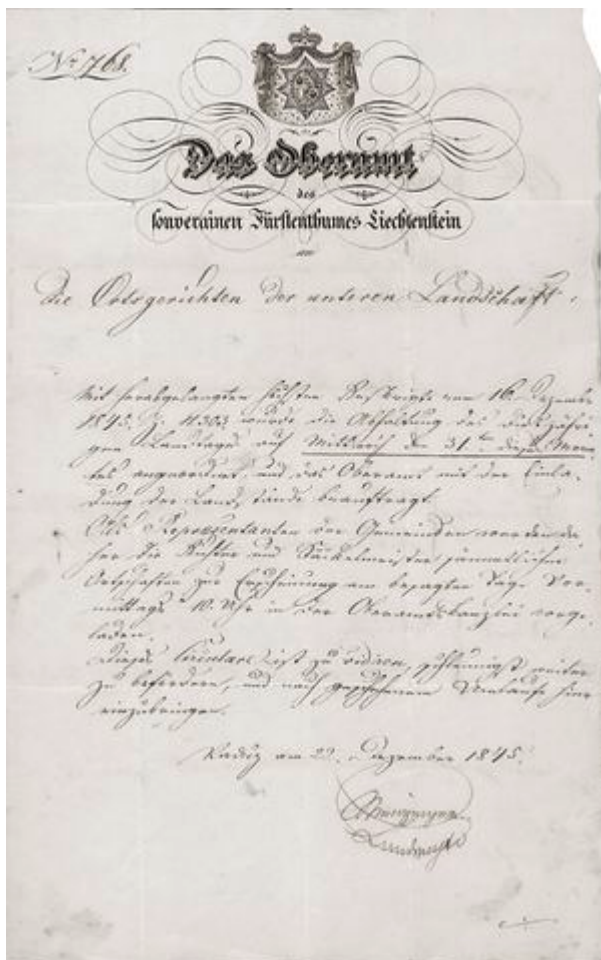 Nr 768.
Das Oberamt
des
souverainen Fürstenthumes Liechtenstein
an
die Ortsgerichten der unteren Landschaft.
Mit herabgelangten höchsten Reskripte vom 16. Dezember
1845. Z. 11303 wurde die Abhaltung des diesjähri
gen Landtages auf Mittwoch den 31ten dieses Mona
tes angeordnet, und das Oberamt mit der Einla-
dung der Landstände beauftragt.
Als Repräsentanten der Gemeinden werden da
her die Richter und Säckelmeister sämmtlicher
Ortschaften zur Erscheinung am besagten Tage Vor-
mittags 10. Uhr in der Oberamtskanzlei vorge-
laden.
Dieses Circulare ist zu vidiren, schleunigst weiter
zu befördern, und nach geschehenem Umlaufe hier
einzubringen.
Vaduz am 22. Dezember 1845.
Landvogt